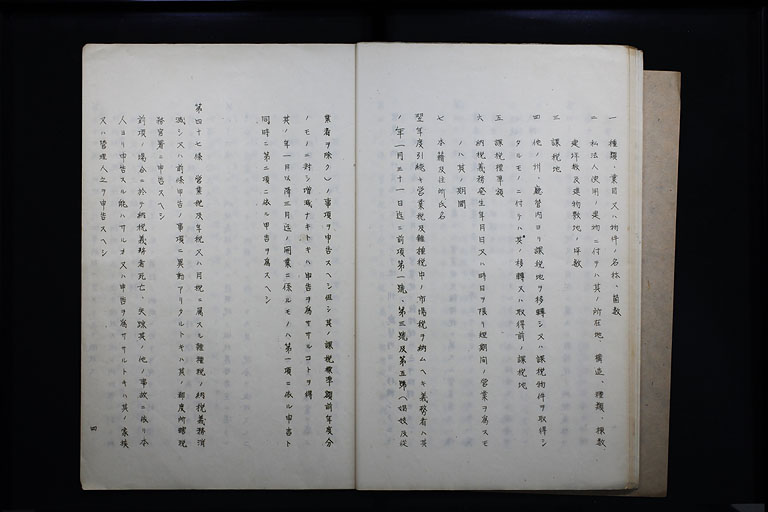 一 種類、業目又ハ物件ノ名称、箇数
二 私法人使用ノ建物ニ付テハ其ノ所在地、構造、種類、棟数、
建坪数及建物敷地ノ坪数
三 課税地
四 他ノ州、廳管内ヨリ課税地ヲ移轉シ又ハ課税物件ヲ取得シ
タルモノニ付テハ其ノ移轉又ハ取得前ノ課税地
五 課税標準額
六 納税義務発生年月日又ハ時日ヲ限リ短期間ノ営業ヲ為スモ
ノハ其ノ期間
七 本籍及住所氏名
翌年度引続キ営業税及雜種税中ノ市場税ヲ納ムヘキ義務者ハ其
ノ年一月三十一日迄ニ前項第一號、第三號及第五號ヘ娼妓及従
業者ヲ除クノ事項ヲ申告スヘシ但シ其ノ課税標準額前年度分
ノモノニ対シ増減ナキトキハ申告ヲ為ササルコトヲ得
其ノ年一月以降三月迄ノ開業ニ係ルモノハ第一項ニ依ル申告ト
同時ニ第二項ニ依ル申告ヲ為スヘシ
第四十七條 営業税及年税又ハ月税ニ属スル雜種税ノ納税義務消
滅シ又ハ前條申告ノ事項ニ異動アリタルトキハ其ノ都度所轄税
務官署ニ申告スヘシ
前項ノ場合ニ於テ納税義務者死亡、失踪其ノ他ノ事故ニ依リ本
人ヨリ申告スル能ハサルカ又ハ申告ヲ為ササルトキハ其ノ家族
又ハ管理人之ヲ申告スヘシ
四